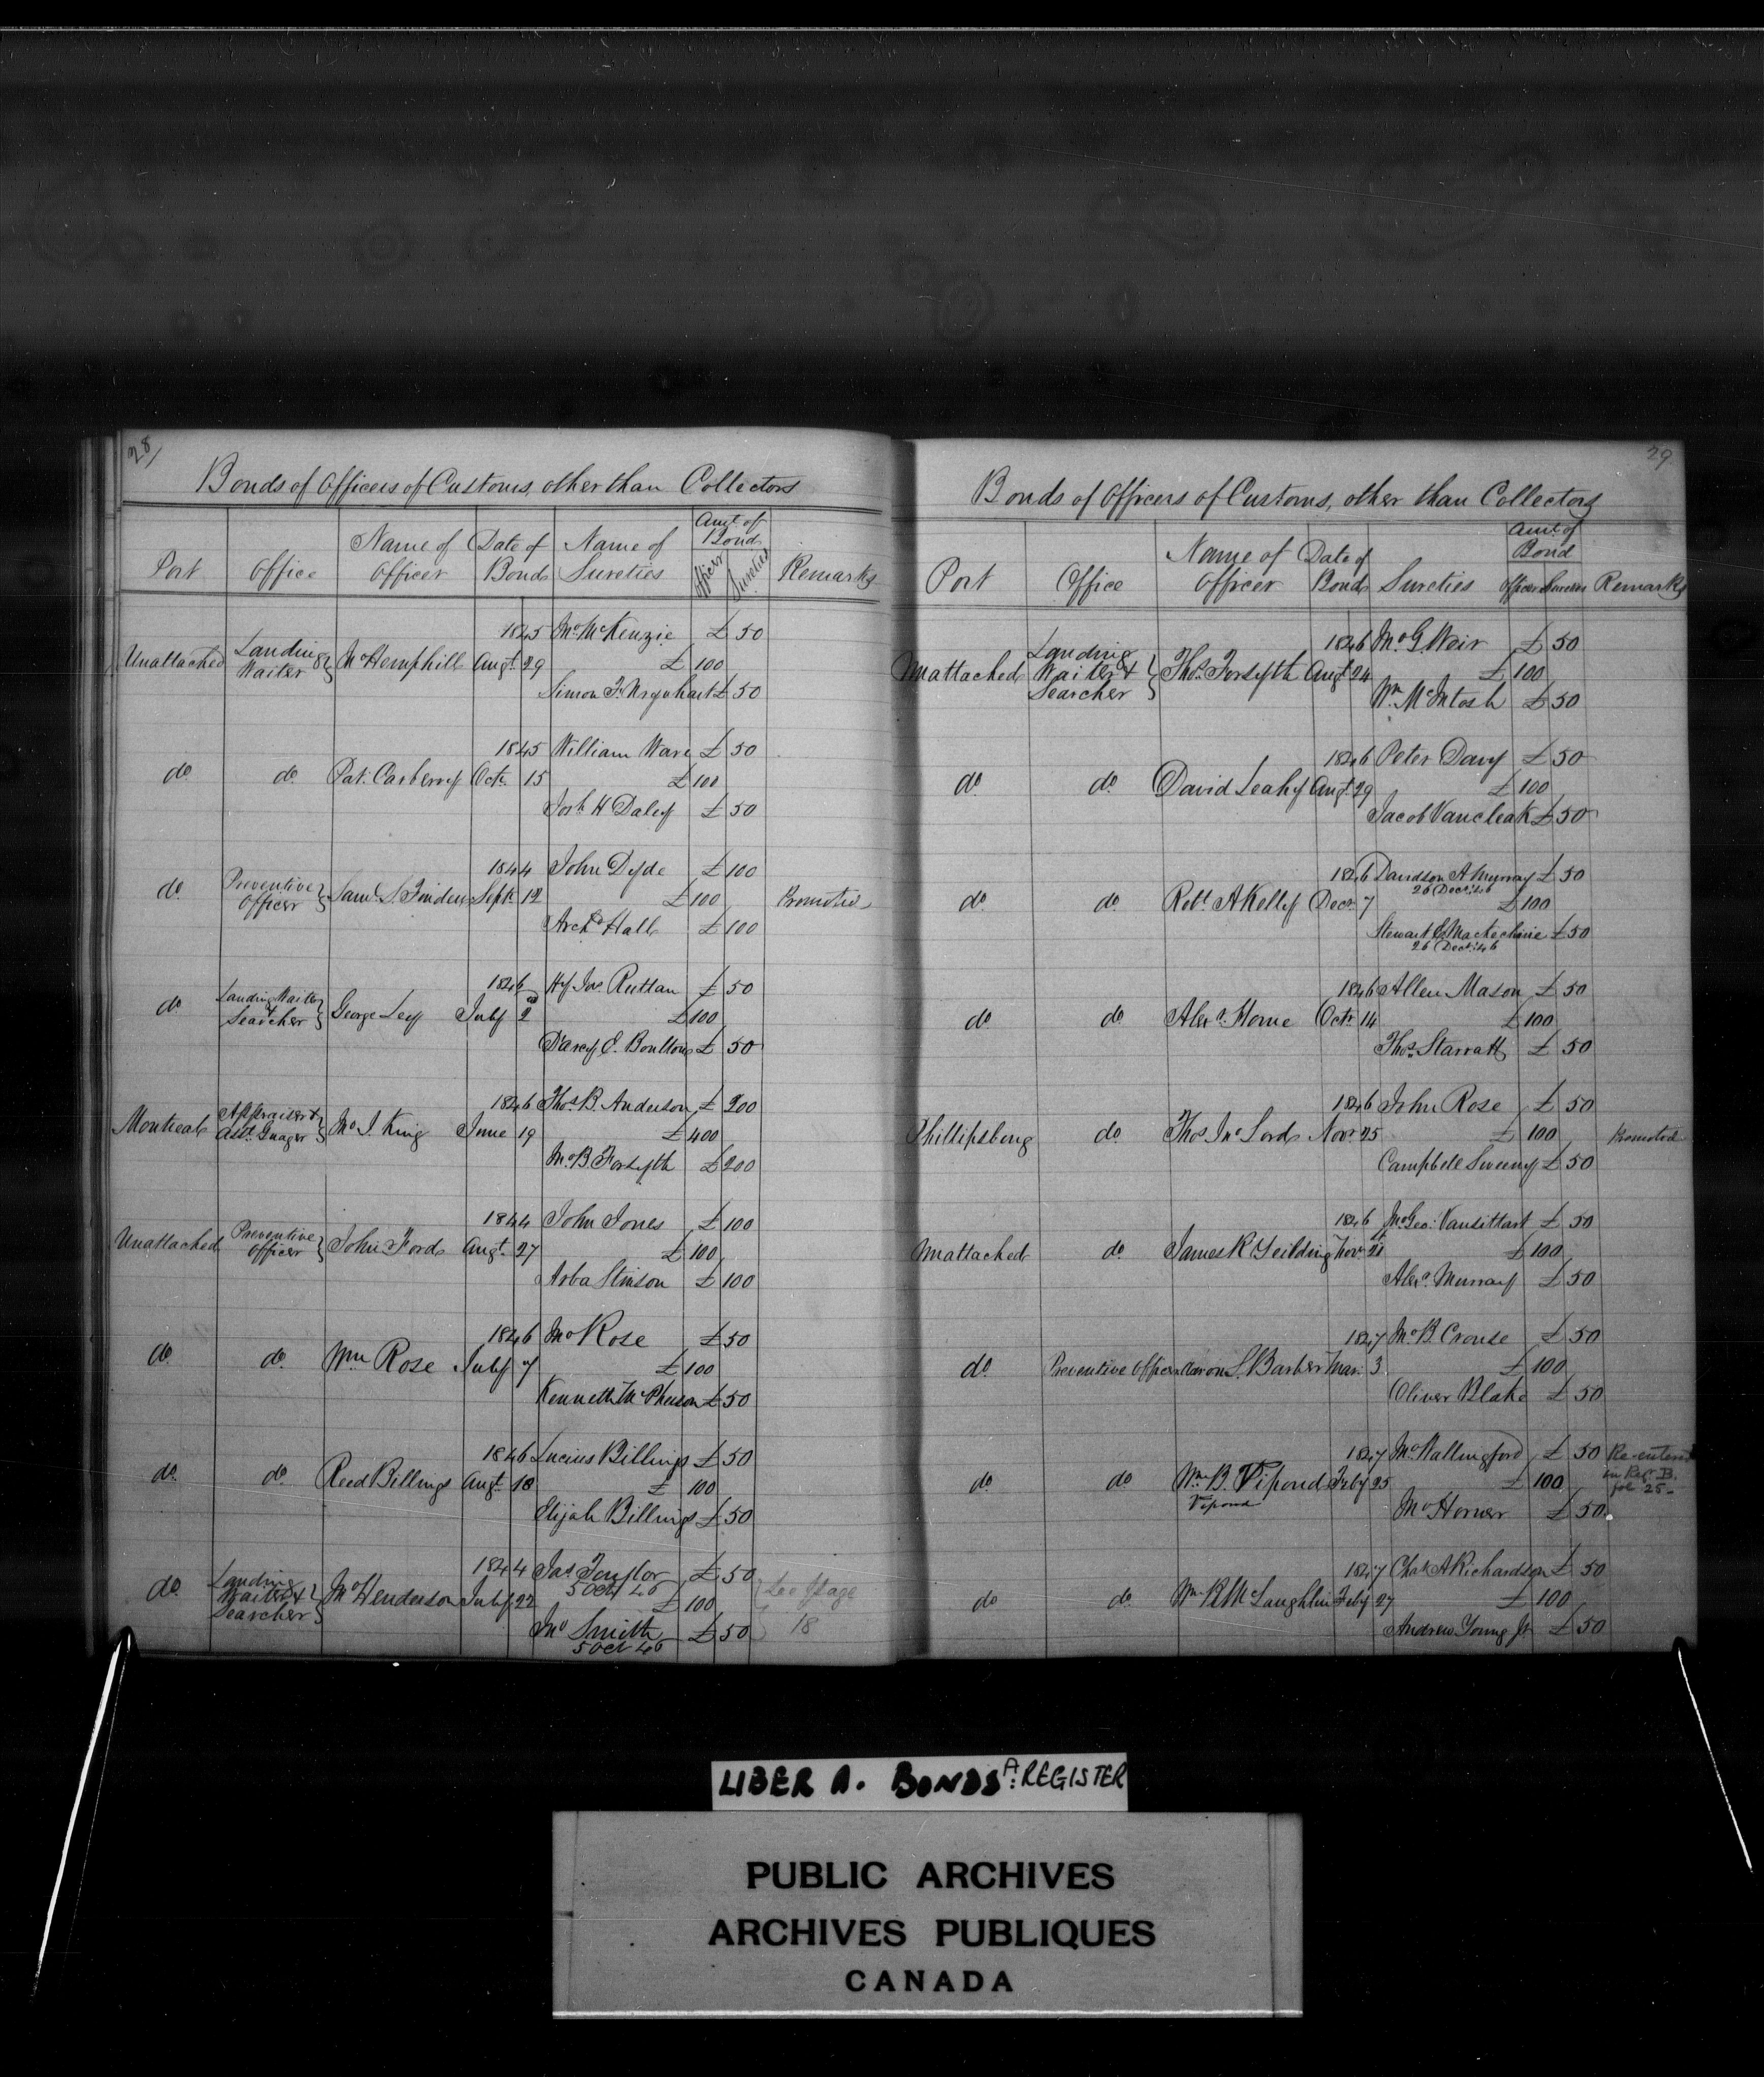 28/
Bonds of Officers of Customs, other than Collectors
Port Office Name of Officer Date of Bond Name of Sureties Amt. of Bond Officer Sureties Remarks
1845 Jno McKenzie £ 50
Unattached Landing Waiter &} Jno Hemphill Augt. 29 £ 100
Simon F. Urquhart £ 50
1845 William Ware £ 50
do do Pat. Carberry Octr. 15 £ 100
Josh H Daley £ 50
1844 John Dyde £ 100
do Preventive Officer} Saml. S. Finden Septr. 12 £ 100 Promotion
Archd Hall £ 100
1846 Hy Jos. Ruttan £ 50
do Landing Waiter & Searcher} George Ley July 2 £ 100
Darcy E. Boulton £ 50
1846 Thos. B. Anderson £ 200
Montreal Appraiser & Asst. Guager} Jno J. King June 19 £ 400
Jno B Forsyth £ 200
1844 John Jones £ 100
Unattached Preventive Officer} John Ford Augt. 27 £ 100
Arba Stinson £ 100
1846 Jno Rose £ 50
do do Wm Rose July 7 £ 100
Kenneth McPherson £ 50
1846 Lucius Billings £ 50
do do Reed Billings Augt. 18 £ 100
Elijah Billings £ 50
1844 Jas. Taylor £ 50
5 Oct 46
do Landing Waiter & Searcher} Jno Henderson July 22 £ 100 See Page 18
Jno Smith £ 50
5 Oct 46
29
Bonds of Officers of Customs, other than Collectors
Port Office Name of Officer Date of Bond Sureties Amt. of Bond Officer Sureties Remarks
1846 Jno G. Weir £ 50
Unattached Landing Waiter & Searcher} Thos. Forsyth Augt. 24 £ 100
Wm. McIntosh £ 50
1846 Peter Davy £ 50
do do David Leahy Augt. 29 £ 100
Jacob Vancleak £ 50
1846 Davidson A Murray £ 50
26 Decr. 46
do do Robt. A Kelly Decr. 7 £ 100
Stewart E Mackechnie £ 50
26 Decr. 46
1846 Allen Mason £ 50
do do Alexr. Horne Octr. 14 £ 100
Thos. Starratt £ 50
1846 John Rose £ 50
Phillipsburg do Thos. Jno Lord Novr. 25 £ 100 Promoted
Campbell Sweeny £ 50
1846 Jno Geo: Vansittart £ 50
Unattached do James K Geilding Novr. 21 £ 100
Alexr. Murray £ 50
1847 Jno B. Crouse £ 50
do Preventive Officer Aaron S. Barber Mar. 3 £ 100
Oliver Blake £ 50
1847 Jno Wallingford £ 50 Re-entered
do do Wm. B. Vipond Feby 25 £ 100 in Regr. B.
Vipond fol 25
Jno Horner £ 50
1847 Chas. A Richardson £ 50
do do Wm. R McLaughlin Feby 27 £ 100
Andrew Young Jr £ 50
LIBER A. BONDS A: REGISTER
PUBLIC ARCHIVES
ARCHIVES PUBLIQUES
CANADA